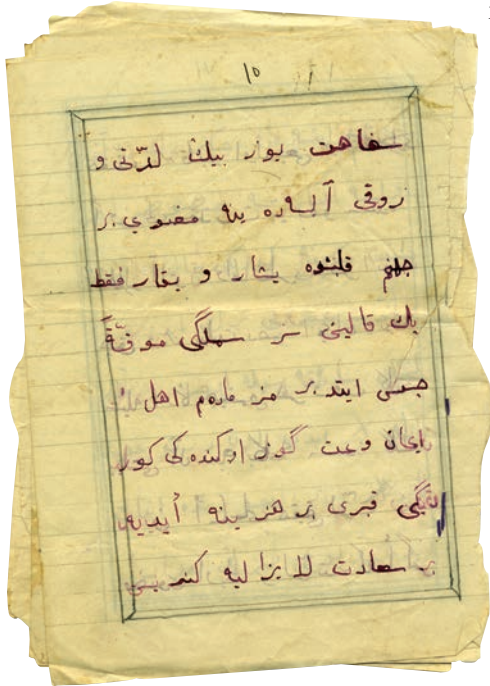 ١٥
سفاهت يوز بيك لذّتى و
ذوقى آلسه ده ينه معنوي بر
جهنم قلبنده يشار و يقار فقط
پك قالين سر سملگى موقّةً
حس ايتدير مز مادام اهل
ايمان وعت گوز اوكنده كى كور
ديگى قبرى بر هزينه ابديه
بر سعادت لايزاليه كند